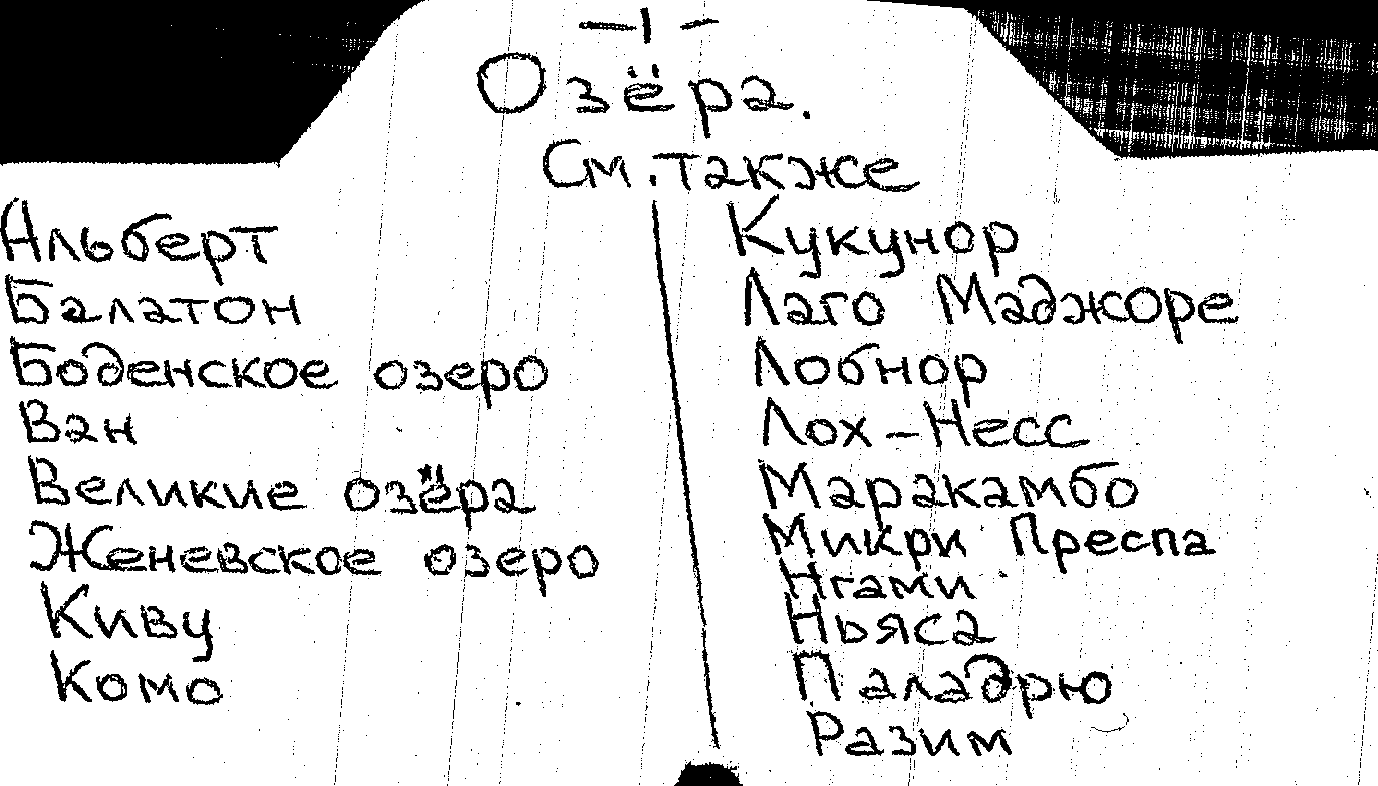 -1-
Озёра.
См. также
Альберт
Балатон
Боденское озеро
Ван
Великие озёра
Женевское озеро
Киву
Комо
Кукунор
Лаго Маджоре
Лобнор
Лох-Несс
Маракамбо
Микри Преспа
Нгами
Ньяса
Паладрю
Разим